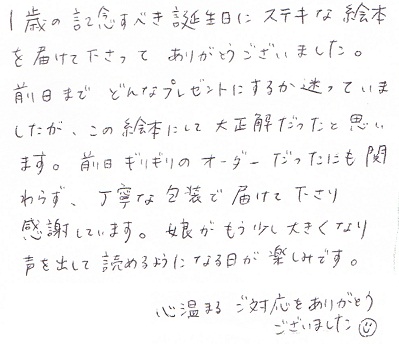 1歳の記念すべき誕生日に ステキな 絵本
を届けて下さって ありがとうございました。
前日まで どんなプレゼントにするか迷っていま
したが、この絵本にして 大正解だったと思い
ます。前日 ギリギリの オーダー だったにも関
わらず、丁寧な包装で 届けて下さり
感謝しています。娘が もう少し大きくなり
声を出して 読めるようになる日が 楽しみです。
心温まる ご対応をありがとう
ございました☺